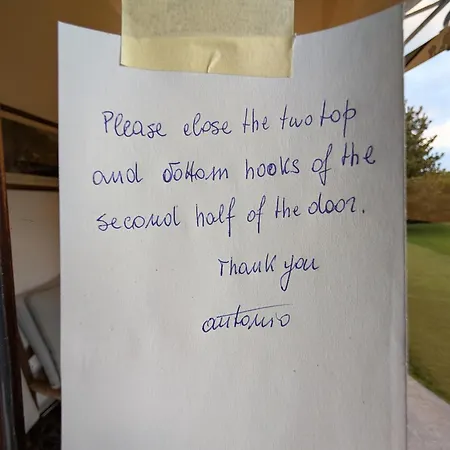 Please close the two top
and bottom hooks of the
second half of the door.
Thank you
antonio